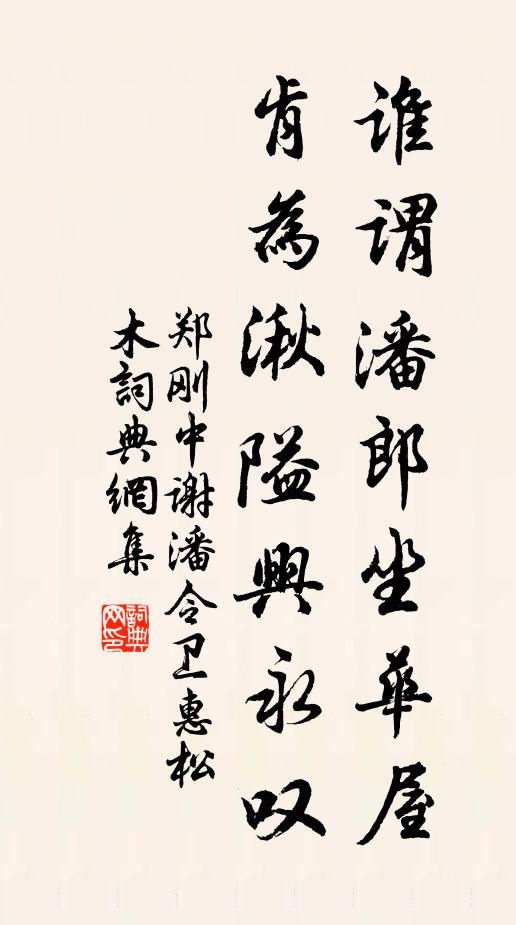 谁谓潘郎坐華屋
肯為湫隘興永叹
郑刚中谢潘令卫惠松
木詞典網集
詞典網印